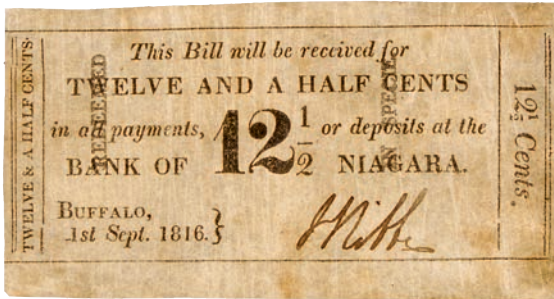 TWELVE & A HALF CENTS.
This Bill will be received for
TWELVE AND A HALF CENTS
in all payments, 12 1/2 or deposits at the
BANK OF NIAGARA.
BUFFALO,
1st Sept. 1816. }
I Kibbe
12½ Cents.
REDEEMED
IN SPECIE